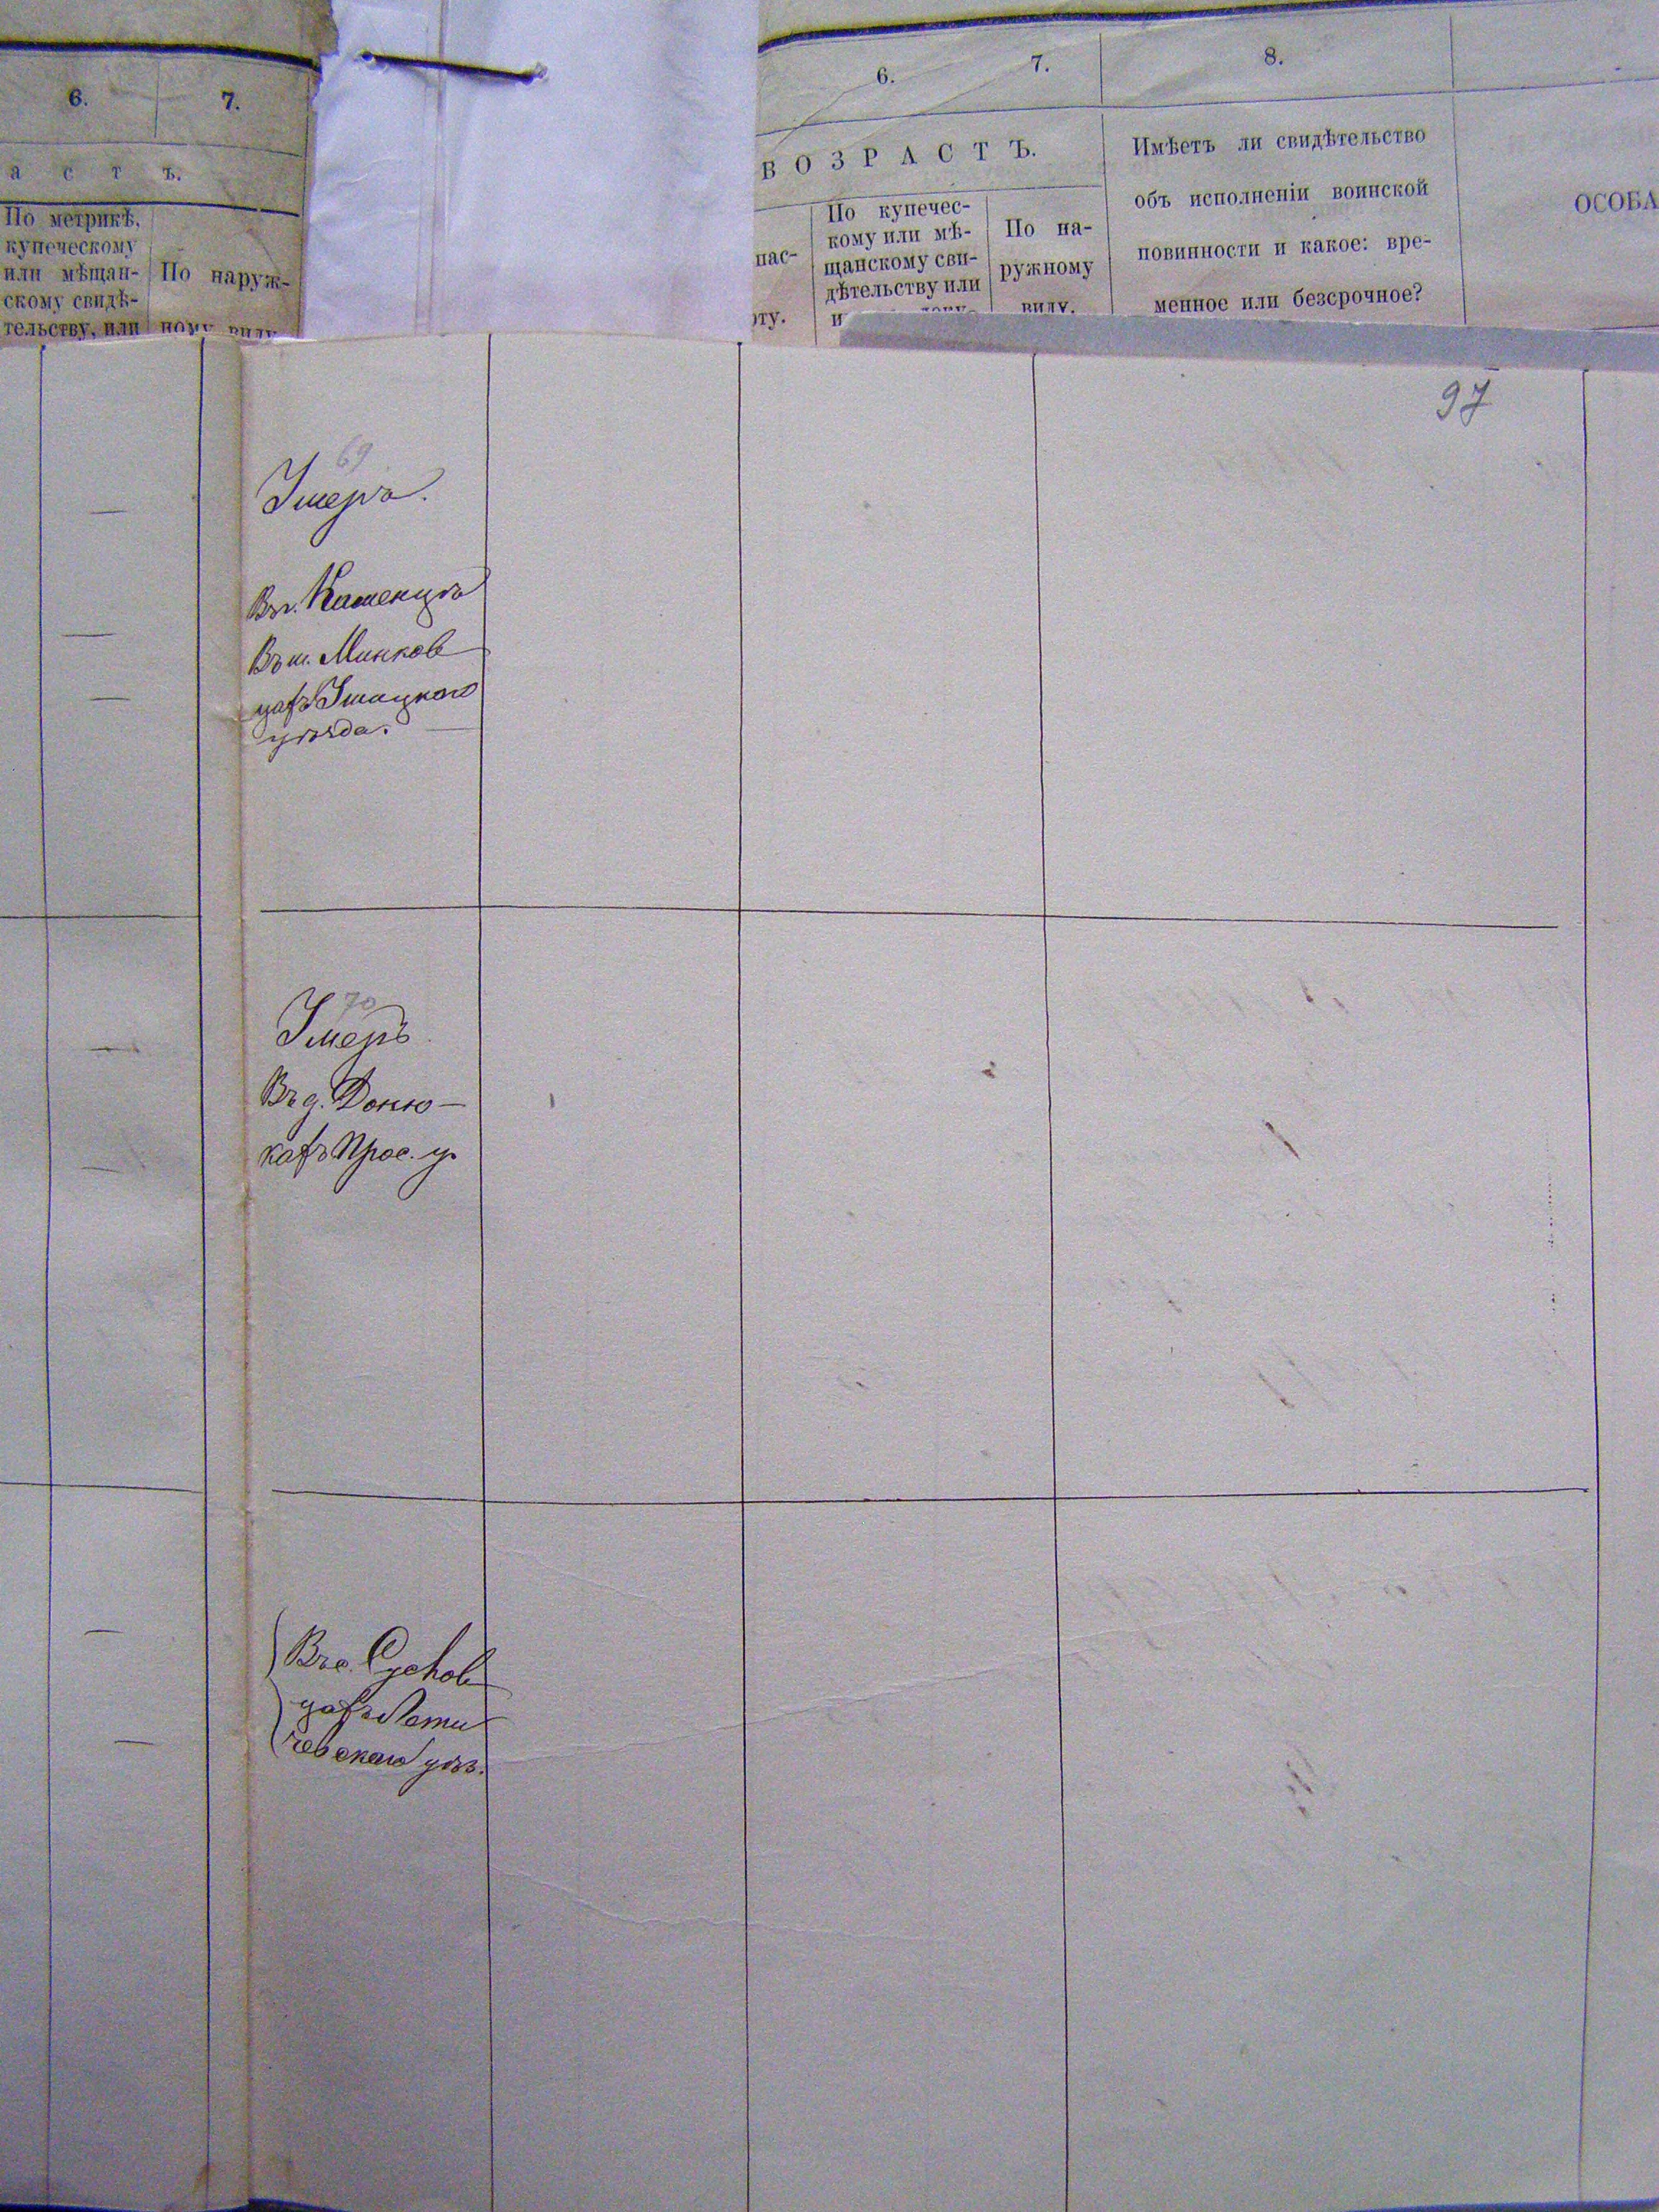 6.
7.
а с т ъ.
По метрикѣ,
купеческому
или мѣщан-
скому свидѣ-
тельству, или
По наруж-
ному виду
6.
7.
8.
ВОЗРАСТЪ.
пас-
рту.
По купечес-
кому или мѣ-
щанскому сви-
дѣтельству или
По на-
ружному
виду.
Имѣетъ ли свидѣтельство
объ исполненіи воинской
повинности и какое: вре-
менное или безсрочное?
ОСОБА
97
69
Умеръ.
Въ г. Каменцѣ
Въ м. Миньков
цахъ Ушицкого
уѣзда.
70
Умеръ
Въ д. Доню-
кахъ Прос. у.
Въ с. Сусловцахъ
цахъ Лети
чевскаго уѣз.